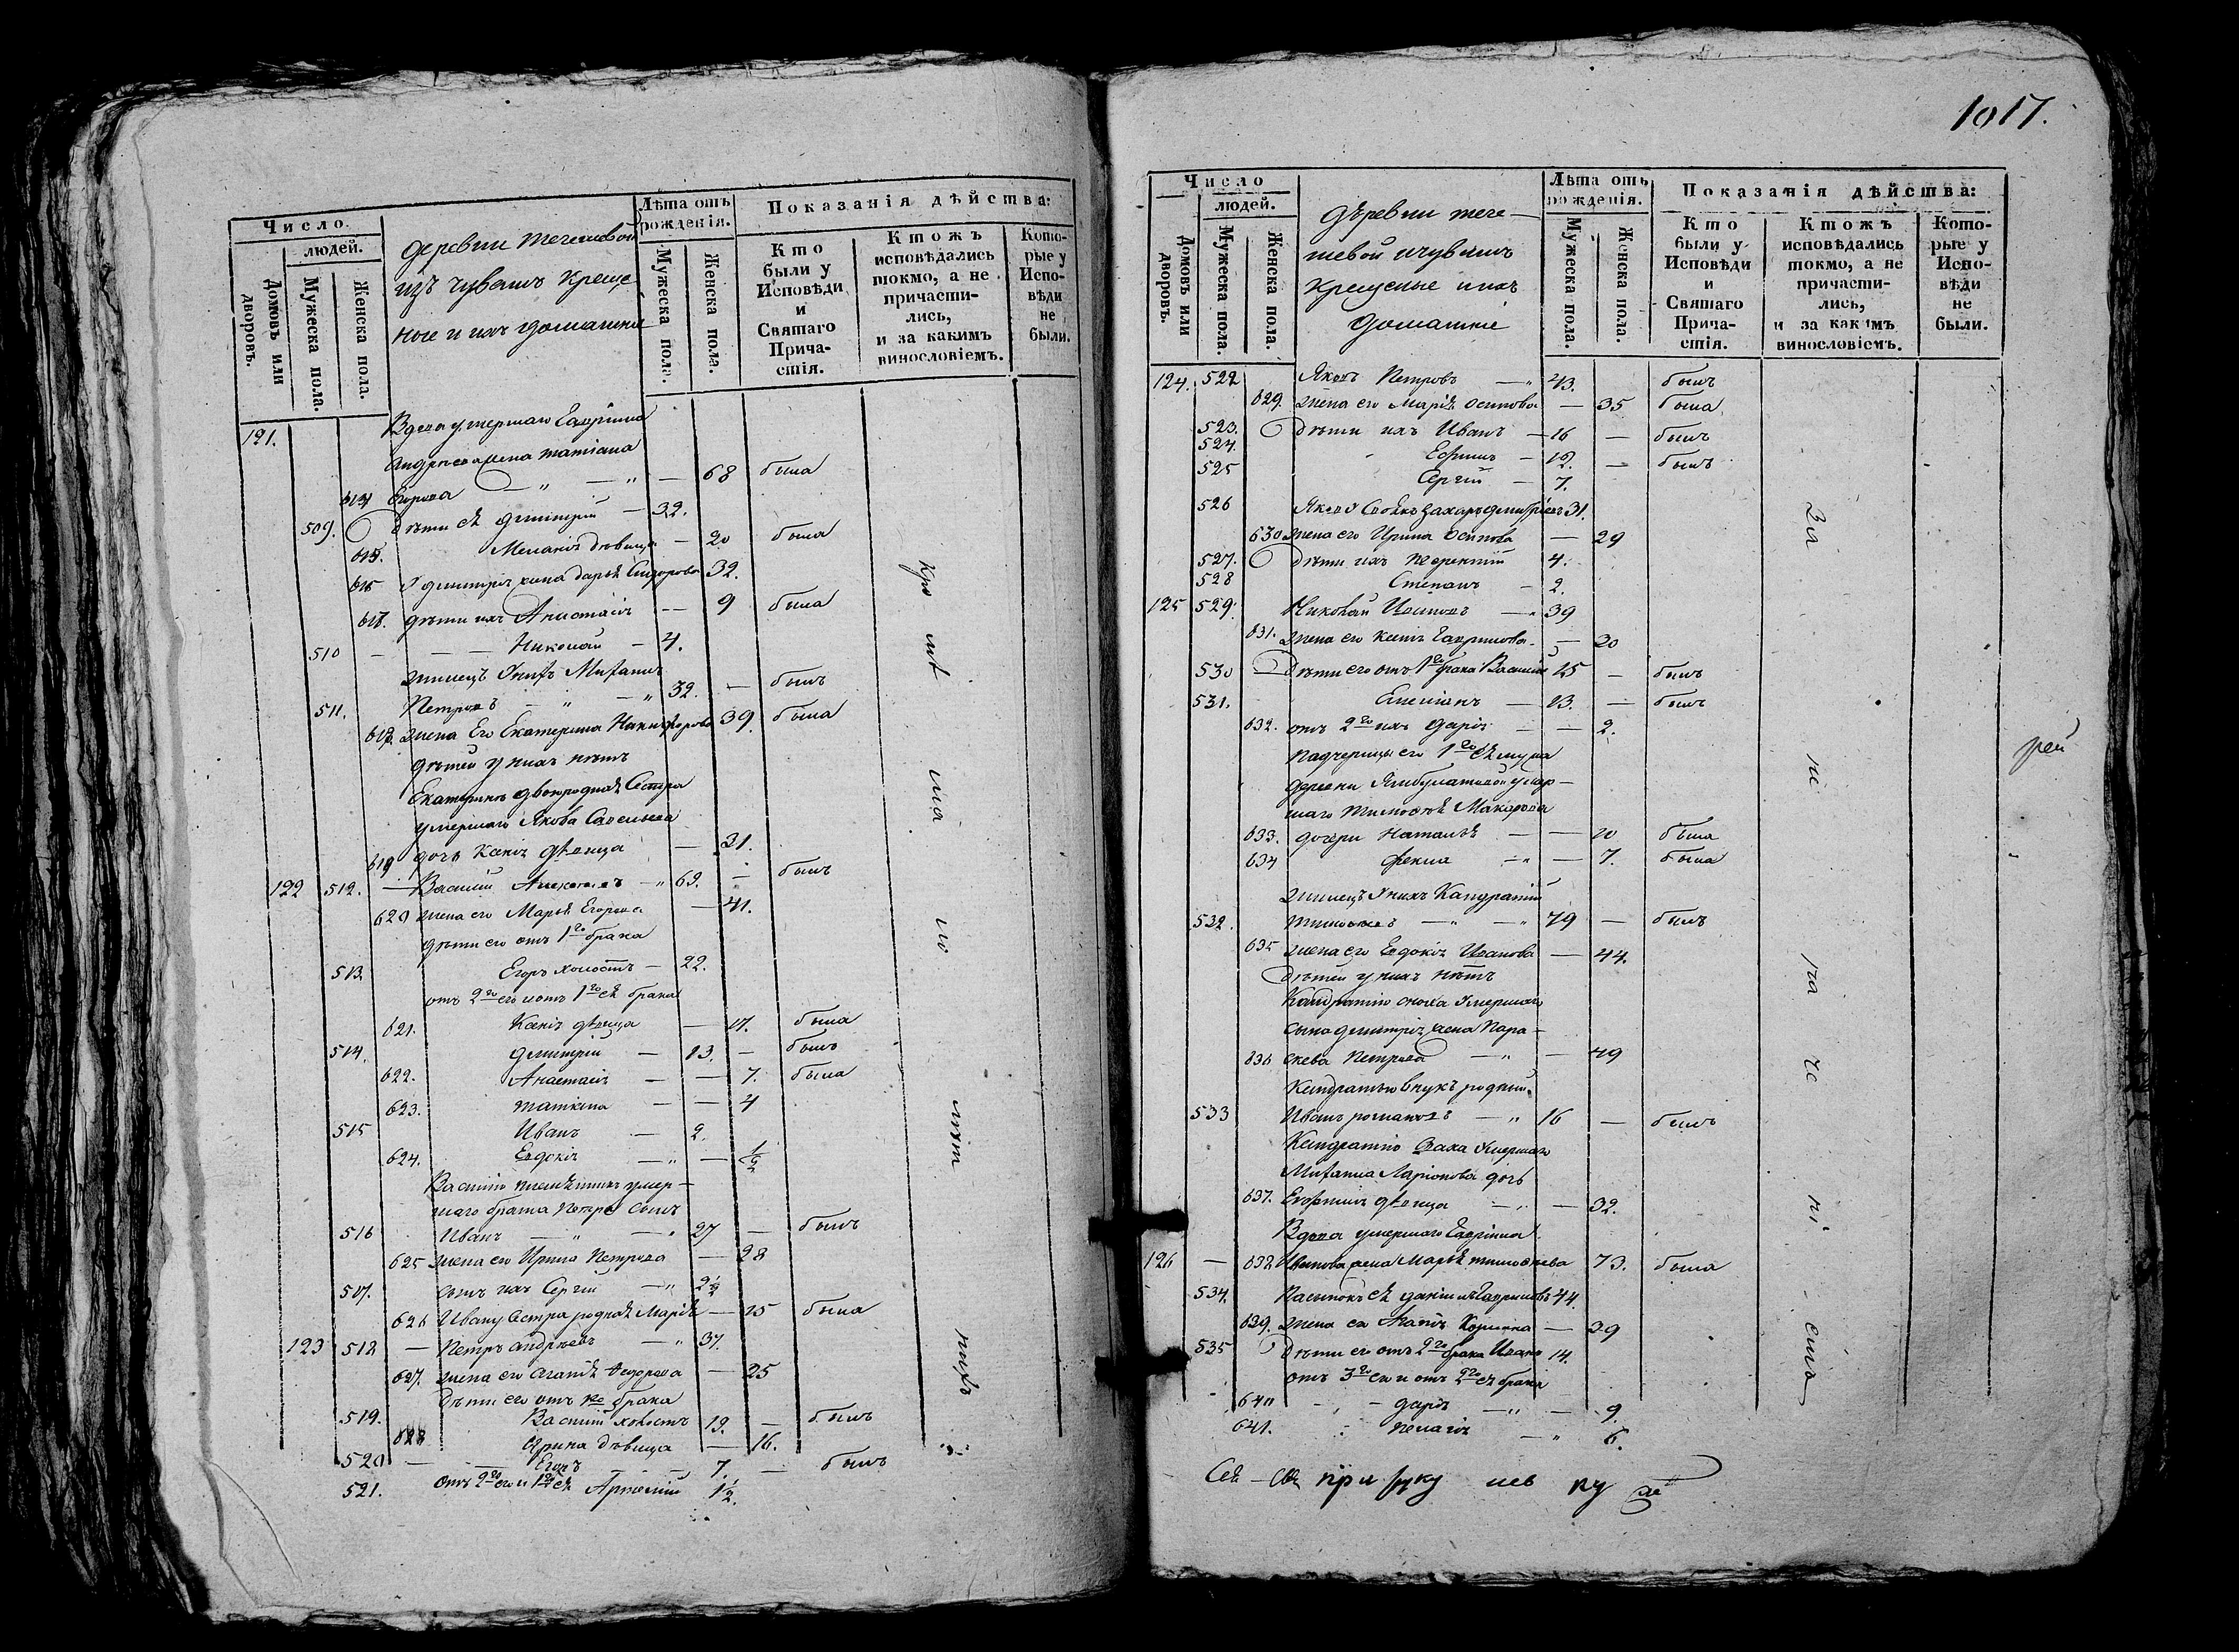 Число
людей.
Домовъ или дворовъ.
Мужеска пола.
Женска пола.
деревни
изъ чувашъ креще
ные и ихъ домашние
Лѣта отъ рожденія.
Мужеска пола.
Женска пола.
Показанія дѣйства:
Кто были у Исповѣди и Святаго Причастія.
Ктожъ исповѣдались токмо, а не причастились, и за какимъ винословіемъ.
Которые у Исповѣди не были.
121. Вдова умершаго Гаврила
Андреева жена татіана
614 Егорова — „ — „ — 68 была
509. дѣти ея димитрий — 32.
615. Меланія дѣвица — 20 была
616 димитрія жена дарья Сидорова 32.
617. дѣти ихъ Анастасія — 9 была
510 — — Николай — 4.
жилецъ
511. Петровъ — „ — „ 32. — былъ
618. жена Его Екатерина Никифорова 39. была
дѣтей у нихъ нѣтъ
Екатеринѣ двоюродная Сестра
умершаго Якова Савельева
619 дочь Ксенія дѣвица — 31.
122 512. — Василий Алексѣевъ — „ 62. — былъ
620 жена его Марья Егорова — 41.
дѣти его отъ 1го брака
513. Егоръ холостъ — 22.
отъ 2го его и отъ 1го ея брака
621. Ксенія дѣвица — 17. была
514. димитрий — 13. — былъ
622. Анастасія — — 7. была
623. татіана — — 4
515 Иванъ — 2.
624. Евдокія — „ — 1/2
Василию племянникъ умер-
шаго брата Петра сынъ
516 Иванъ — „ — „ 27 — былъ
625 жена его Ирина Петрова — 28
517. сынъ ихъ Сергий — „ 2 1/2
626 Ивану Сестра родная Марія — 15 была
123 518 — Петръ андрѣевъ — „ 37.
627. жена его Агафія Федорова — 25
дѣти его отъ 1го брака
519. Василий холостъ 19. — былъ
628 Ирина дѣвица — 16.
520 — Егоръ — 7. — былъ
521. отъ 2го его и 1го ея Артемий 1 1/2.
1017.
Число
людей.
Домовъ или дворовъ.
Мужеска пола.
Женска пола.
деревни
чувашъ
крещеные и ихъ
домашние
Лѣта отъ рожденія.
Мужеска пола.
Женска пола.
Показанія дѣйства:
Кто были у Исповѣди и Святаго Причастія.
Ктожъ исповѣдались токмо, а не причастились, и за какимъ винословіемъ.
Которые у Исповѣди не были.
124. 522 Яковъ Петровъ — „ 43. былъ
629. жена его Марія Осипова — 35 была
523. дѣти ихъ Иванъ — 16 — былъ
524. Ефимъ — 12. — былъ
525 Сергій — 7.
526 Якову Своякъ захаръ димитріевъ 31.
630 жена его Ирина Осипова — 29
527. дѣти ихъ 4.
528 Степанъ — 2.
125 529. Николай — „ 39
631. жена его Ксенія Гаврилова. — 30
530 — дѣти его отъ 1го брака Василий 15 — былъ
531. Емеліанъ — 13. — былъ
632. отъ 2го ихъ дарія — — 2.
падчерицы его 1го ея мужа
деревни умер-
шаго тимофея Макарова
633. дочери Наталья — — 10 была
634 Фекла — „ — 7. была
жилецъ у нихъ Кандратий
532. тимофеевъ — „ — „ 79 — былъ
635 жена его Евдокія Иванова — 44.
дѣтей у нихъ нѣтъ
Кандратию сноха умершаго
сына димитрія жена Пара-
636 скева Петрова — „ — 49
Кандратью внукъ родный
533 Иванъ романовъ — „ 16 — былъ
Кандратию умершаго
Ларіонова дочь
637. дѣвица — „ — 32.
Вдова умершаго Гаврила
126 — 638 Иванова жена Марья тимофеева 73. была
534. Пасынокъ ея даниилъ Гавриловъ 44.
639. жена ея — 39
535 дѣти его отъ 2го брака Иванъ 14.
отъ 3го его и отъ 2го ея брака
640 — дарія — „ — 9.
641. пелагія — „ 6.
рей